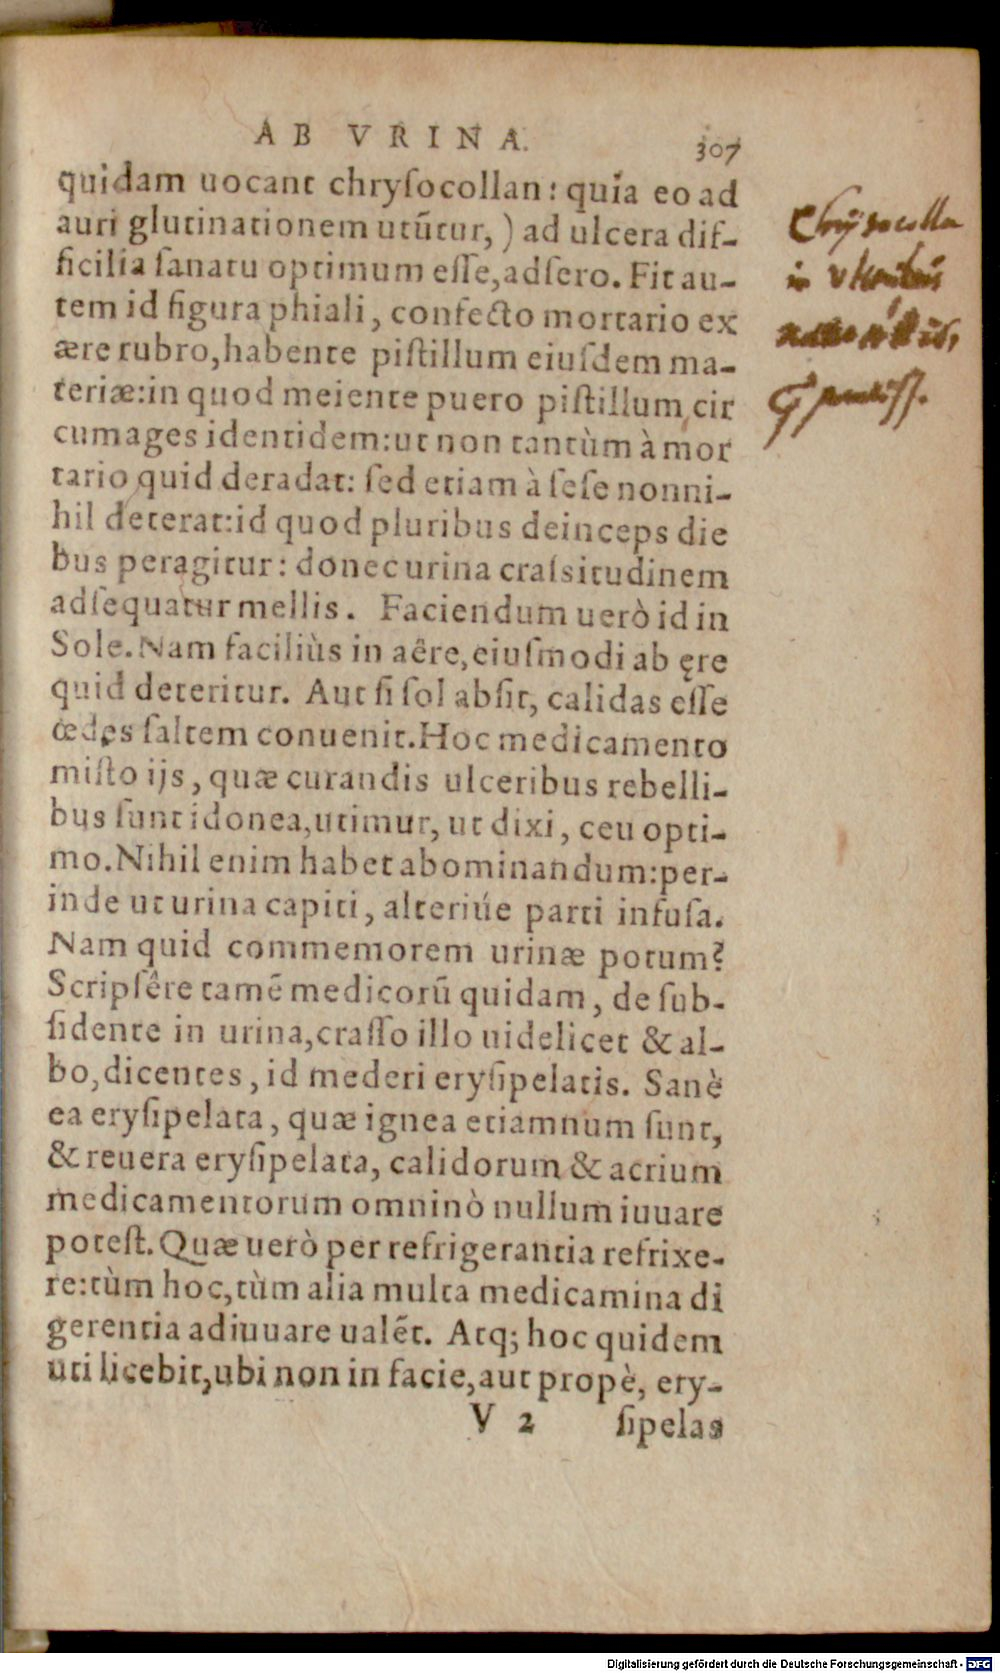 AB VRINA. 307
quidam uocant chryſocollan: quia eo ad
auri glutinationem utūtur,) ad ulcera dif-
ficilia ſanatu optimum eſſe, adſero. Fit au-
tem id figura phiali, confecto mortario ex
ære rubro, habente piſtillum eiuſdem ma-
teriæ: in quod meiente puero piſtillum cir
cumages identidem: ut non tantùm à mor
tario quid deradat: ſed etiam à ſeſe nonni-
hil deterat: id quod pluribus deinceps die
bus peragitur: donec urina craſsitudinem
adſequatur mellis. Faciendum uerò id in
Sole. Nam faciliùs in aêre, eiuſmodi ab ęre
quid deteritur. Aut ſi ſol abſit, calidas eſſe
œdes ſaltem conuenit. Hoc medicamento
miſto ijs, quæ curandis ulceribus rebelli-
bus ſunt idonea, utimur, ut dixi, ceu opti-
mo. Nihil enim habet abominandum: per-
inde ut urina capiti, alteriúe parti infuſa.
Nam quid commemorem urinæ potum?
Scripſêre tamē medicorū quidam, de ſub-
ſidente in urina, craſſo illo uidelicet & al-
bo, dicentes, id mederi eryſipelatis. Sanè
ea eryſipelata, quæ ignea etiamnum ſunt,
& reuera eryſipelata, calidorum & acrium
medicamentorum omninò nullum iuuare
poteſt. Quæ uerò per refrigerantia refrixe-
re: tùm hoc, tùm alia multa medicamina di
gerentia adiuuare ualēt. Atq; hoc quidem
uti licebit, ubi non in facie, aut propè, ery-
V 2 ſipelas
Chrysocolla
in
Digitalisierung gefördert durch die Deutsche Forschungsgemeinschaft - DFG